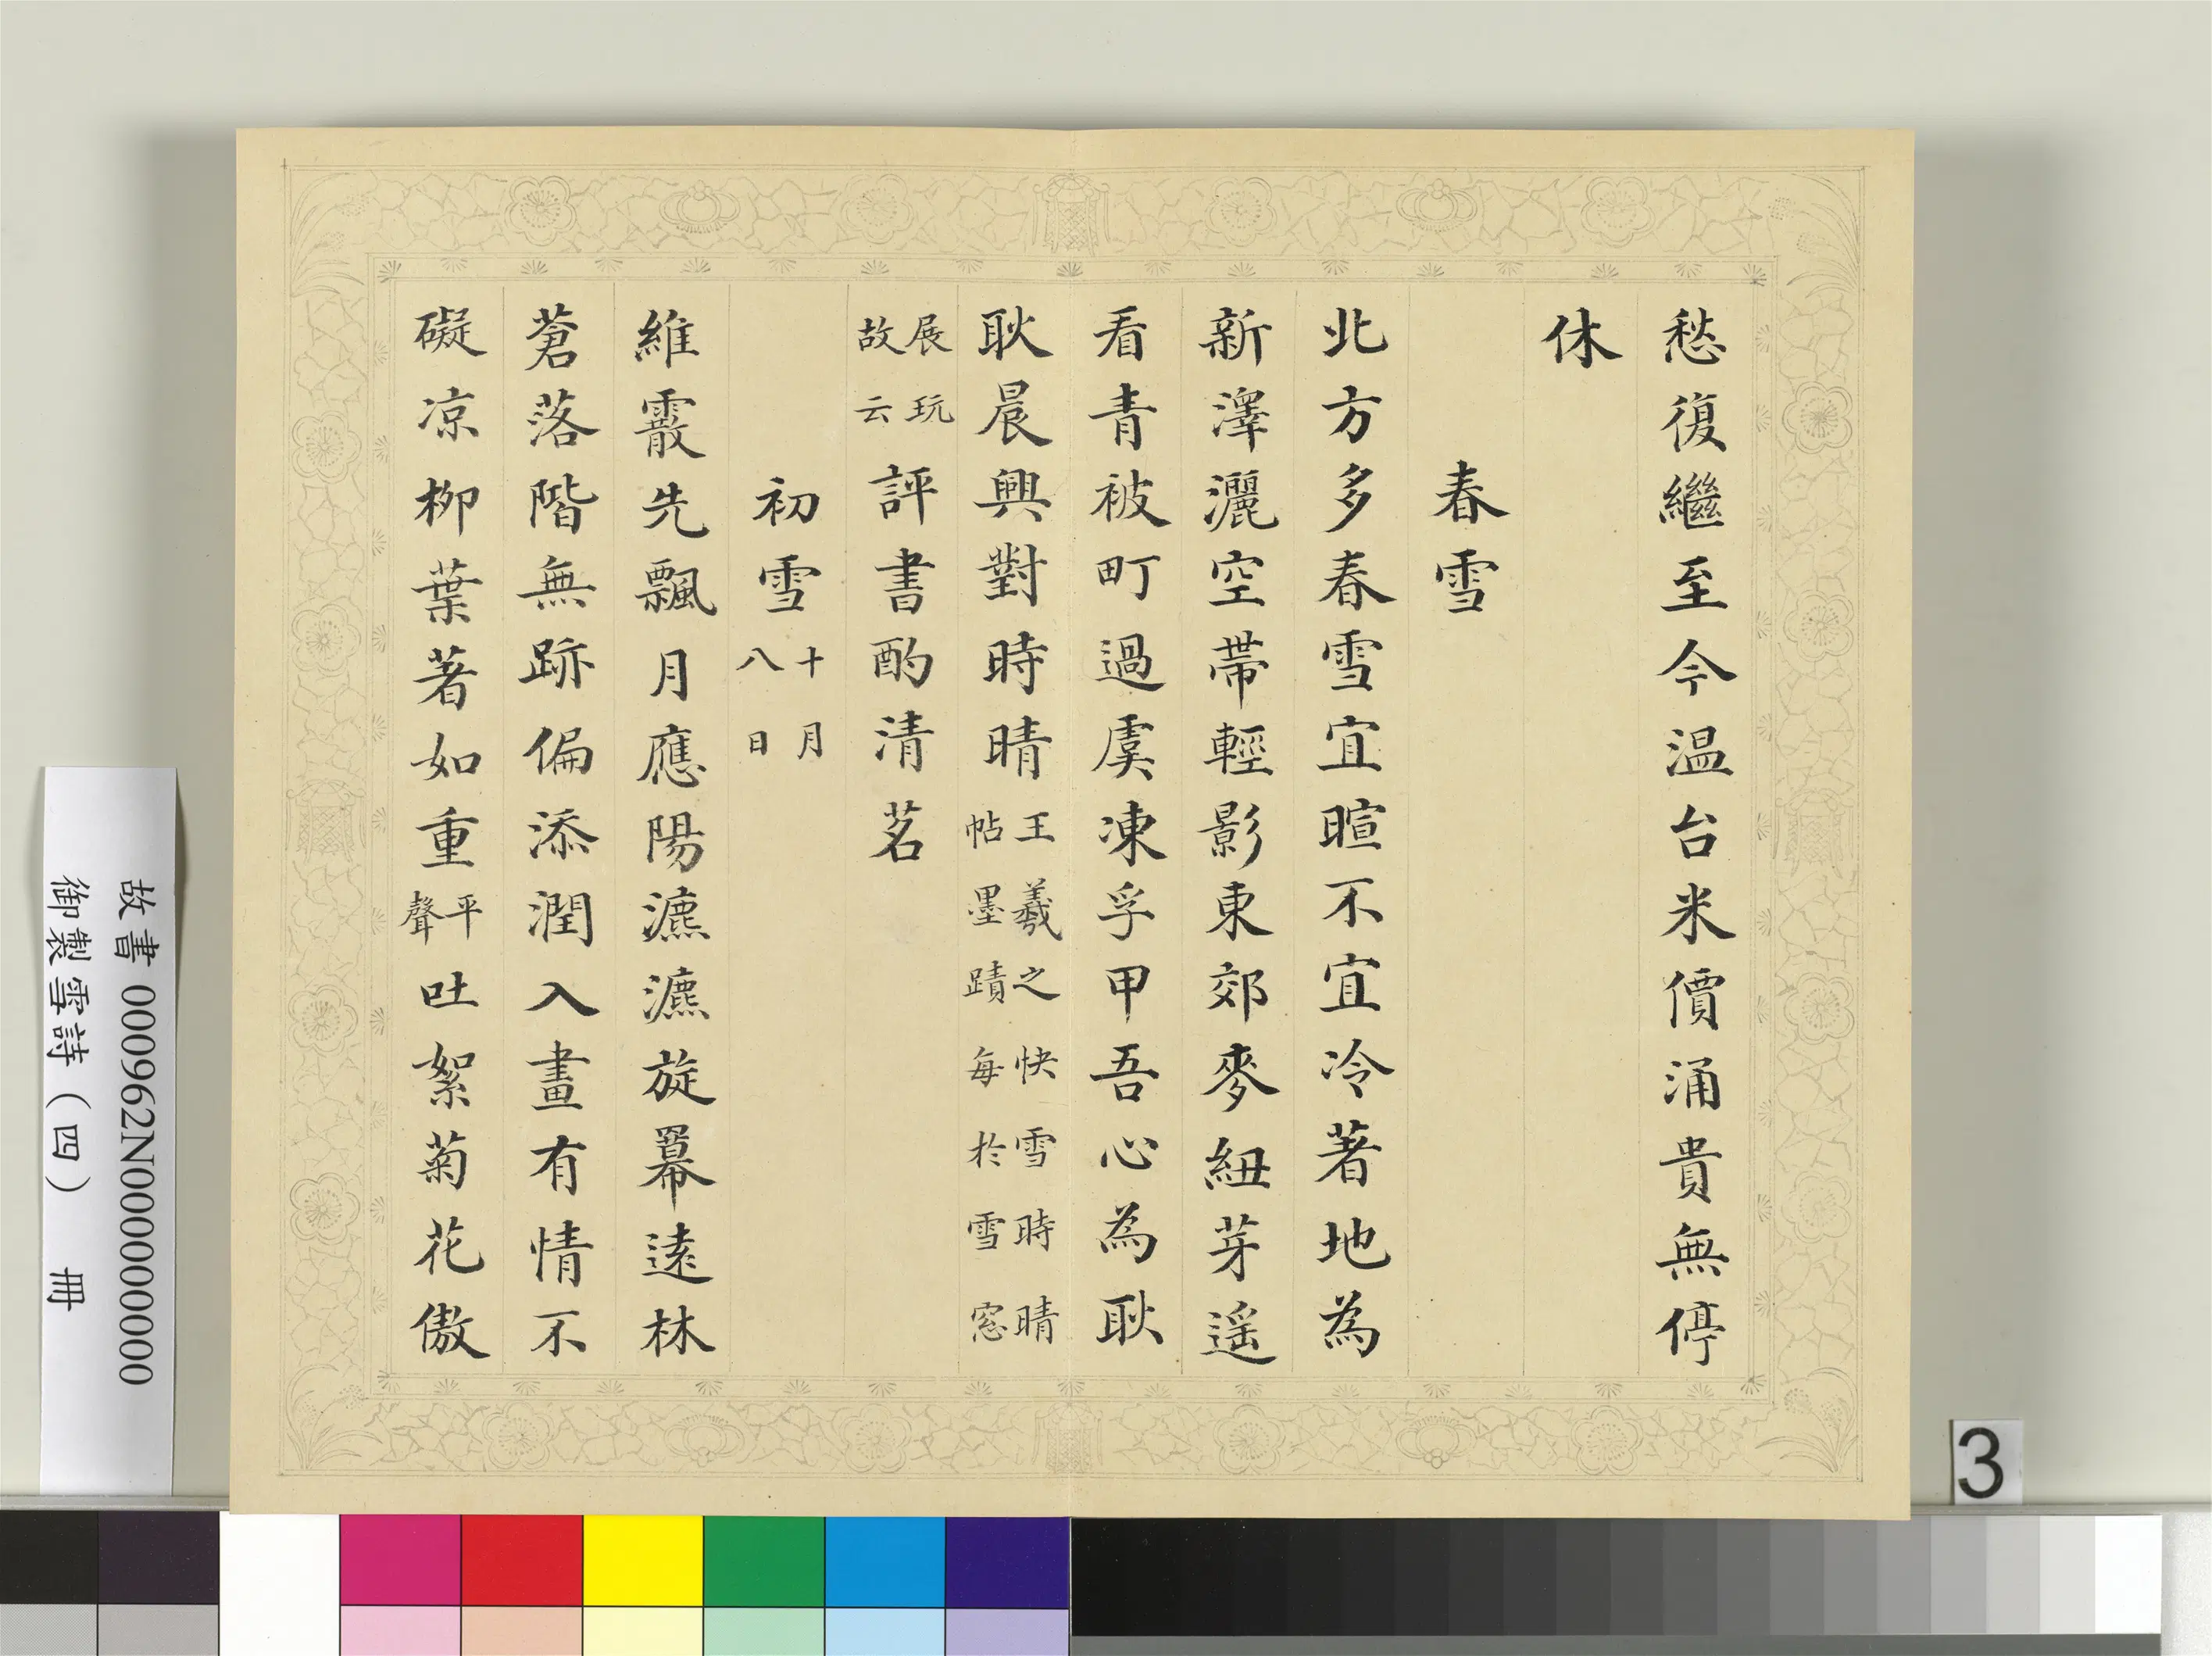 愁復繼至今温台米價涌貴無停
休
春雪
北方多春雪宜暄不宜冷著地為
新澤灑空帶輕影東郊麥紐芽遥
看青被町過虞凍孚甲吾心為耿
耿晨興對時晴王羲之快雪時晴帖墨蹟每於雪窓
展玩故云評書酌清茗
初雪十月八日
維霰先飄月應陽瀌瀌旋羃遠林
蒼落階無跡偏添潤入畫有情不
礙凉柳葉著如重平聲吐絮菊花傲
故書 000962N000000000
御製雪詩（四） 冊
3